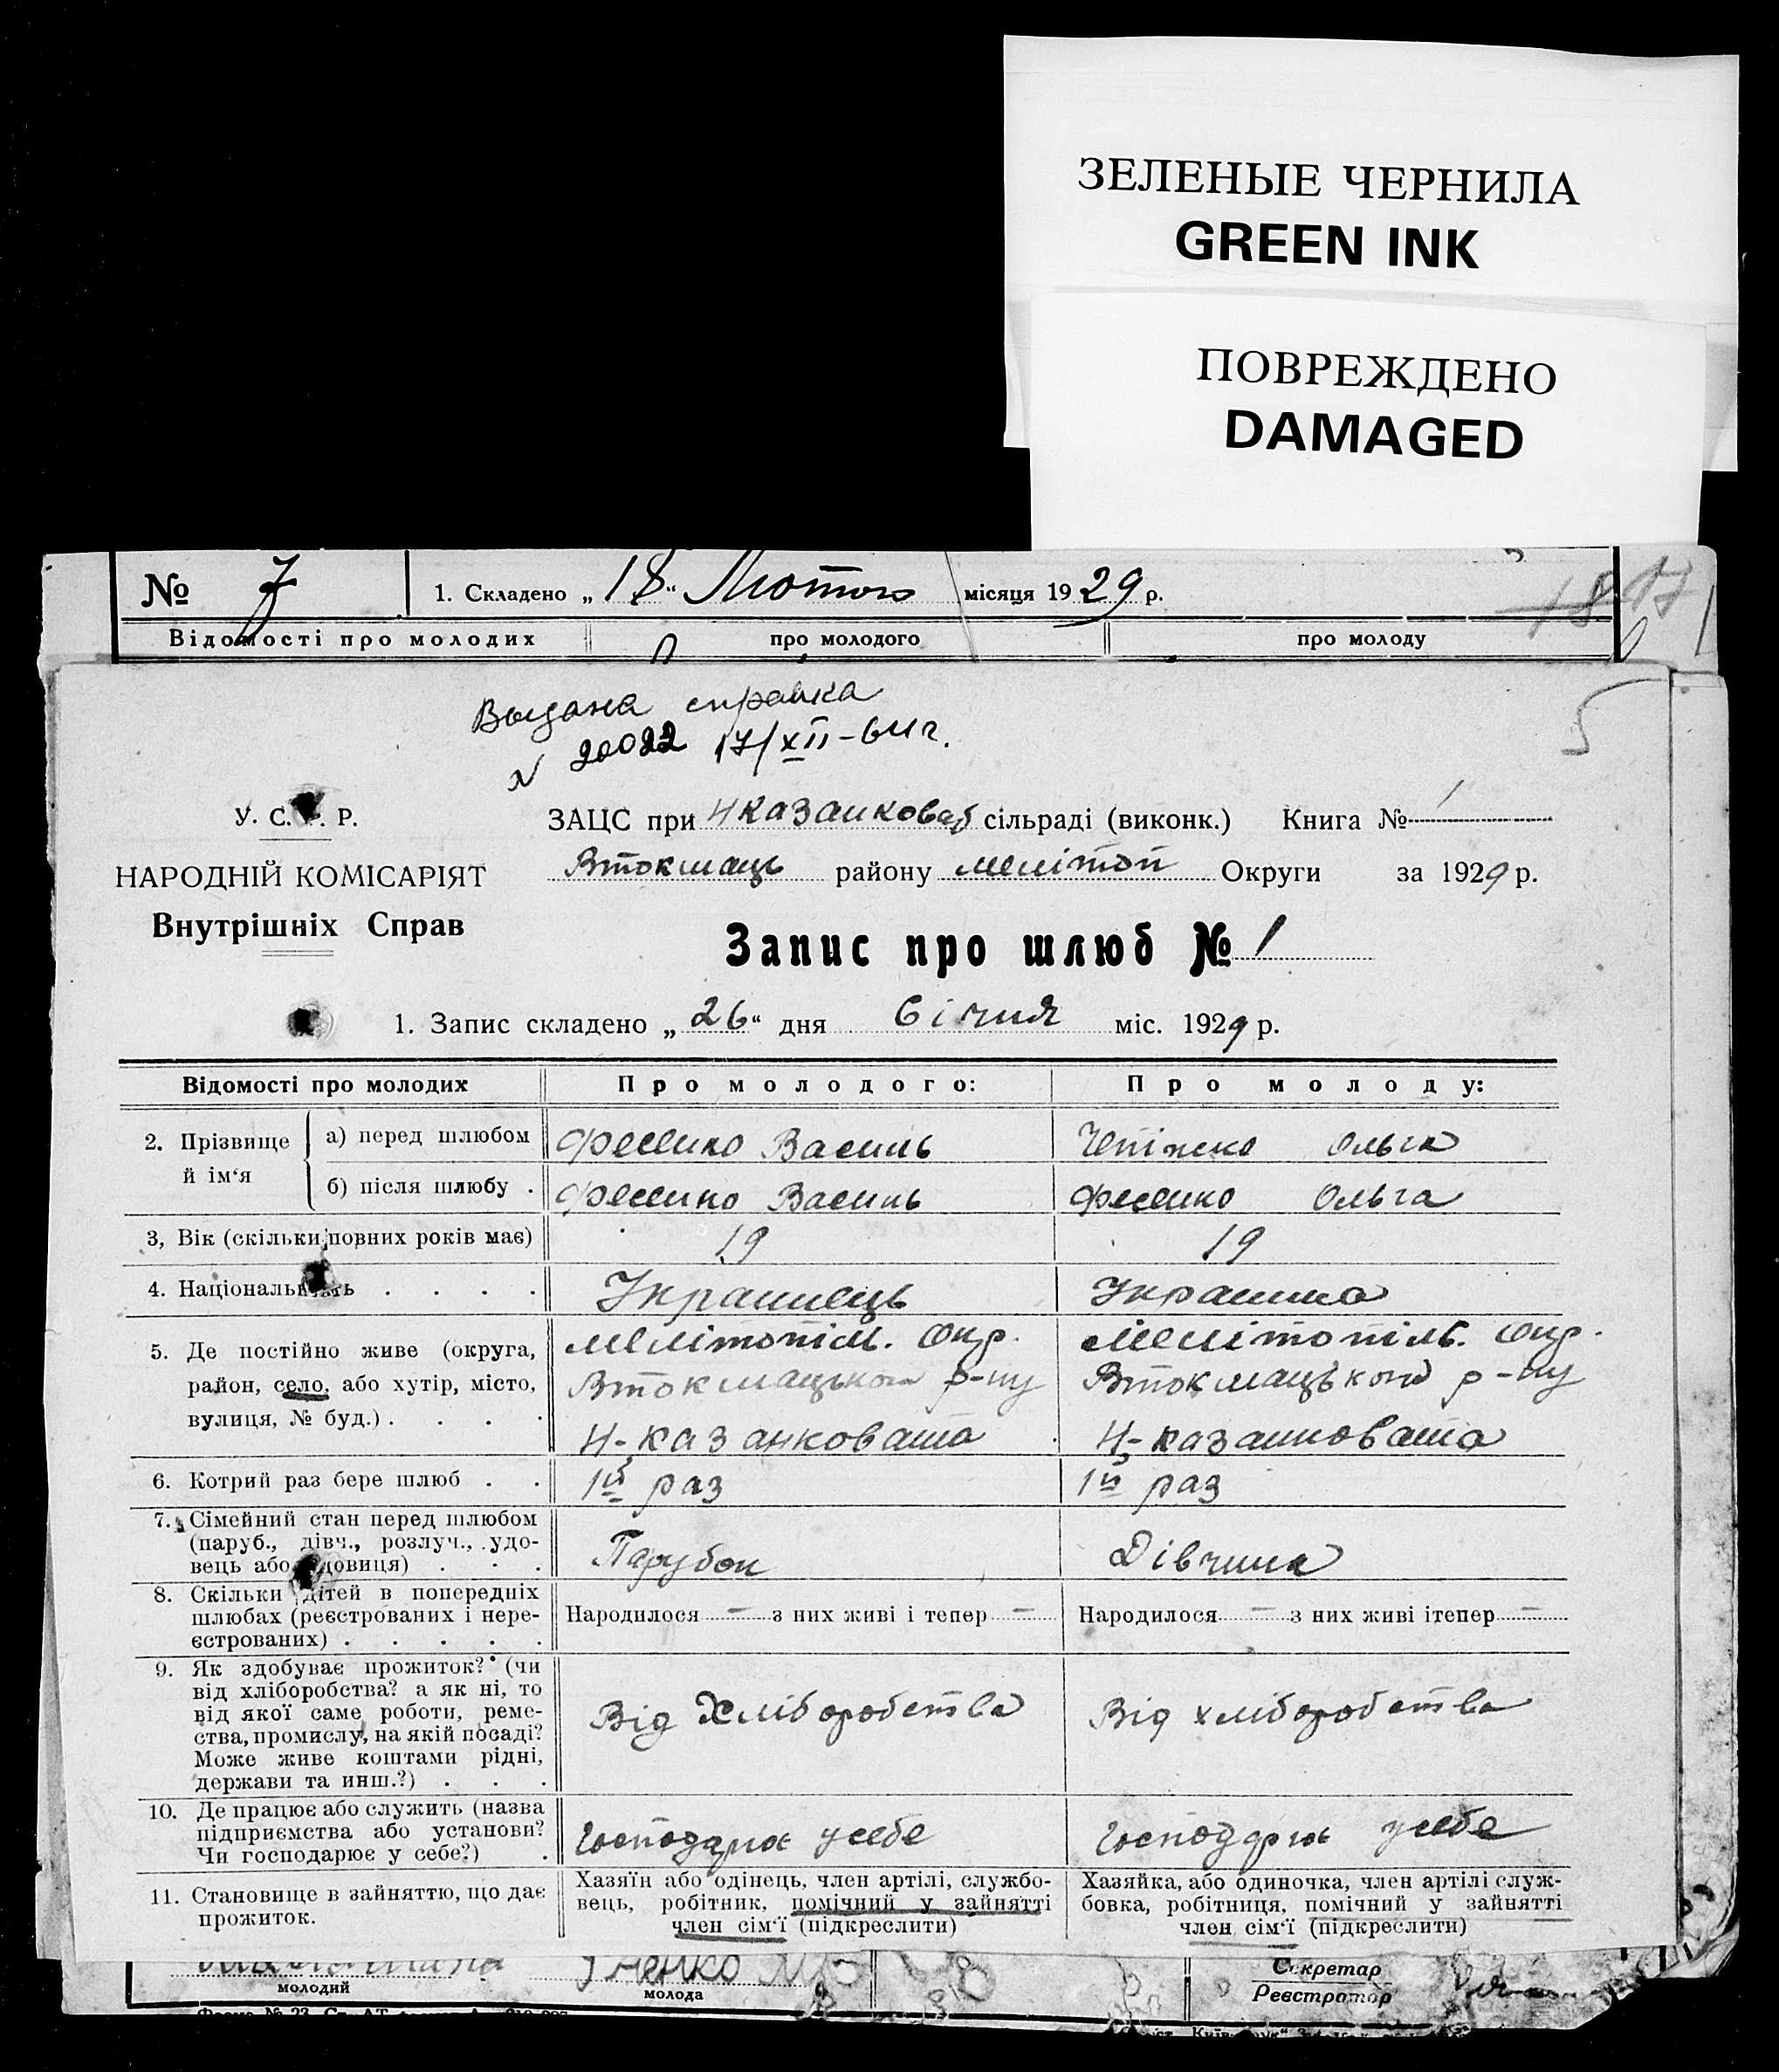 ЗЕЛЕНЫЕ ЧЕРНИЛА
GREEN INK
ПОВРЕЖДЕНО
DAMAGED
№ 7 1. Складено „18“ Лютого місяця 1929 р.
18 17
Відомості про молодих про молодого про молоду
Выдана справка
N 20022 17/XII-64г.
5
У. С. Р. ЗАЦС при Нказанковаб сільраді (виконк.) Книга № 1
НАРОДНІЙ КОМІСАРІЯТ Втокмаць району Мелітоп Округи за 1929 р.
Внутрішніх Справ
Запис про шлюб № 1
1. Запис складено „26“ дня Січня міс. 1929 р.
Відомості про молодих Про молодого: Про молоду:
2. Прізвище й ім‘я а) перед шлюбом Фесенко Василь Ольга
б) після шлюбу . Фесенко Василь Фесенко Ольга
3, Вік (скільки повних років має) 19 19
4. Національність . . . . Українець Українка
5. Де постійно живе (округа, Мелітопіль. Окр. Мелітопіль. Окр.
район, село, або хутір, місто, Втокмацького р-ну Втокмацького р-ну
вулиця, № буд.) . . . . Н-казанковата Н-казанковата
6. Котрий раз бере шлюб . . 1й раз 1й раз
7. Сімейний стан перед шлюбом
(паруб., дівч., розлуч., удо-
вець або удовиця) . . . Парубок Дівчина
8. Скільки дітей в попередніх
шлюбах (реєстрованих і нере- Народилося — з них живі і тепер — Народилося — з них живі ітепер —
єстрованих) . . . . .
9. Як здобуває прожиток? (чи
від хліборобства? а як ні, то
від якої саме роботи, реме- Від Хліборобства Від хліборобства
ства, промислу, на якій посаді?
Може живе коштами рідні,
держави та инш.?) . . .
10. Де працює або служить (назва
підприємства або установи? Господарює усебе Господарює усебе
Чи господарює у себе?) .
11. Становище в зайняттю, що дає
прожиток.
Хазяїн або одінець, член артілі, службо-
вець, робітник, помічний у зайнятті
член сім‘ї (підкреслити)
Хазяйка, або одиночка, член артілі служ-
бовка, робітниця, помічний у зайнятті
член сім‘ї (підкреслити)
молодий молода
Секретар
Реєстратор